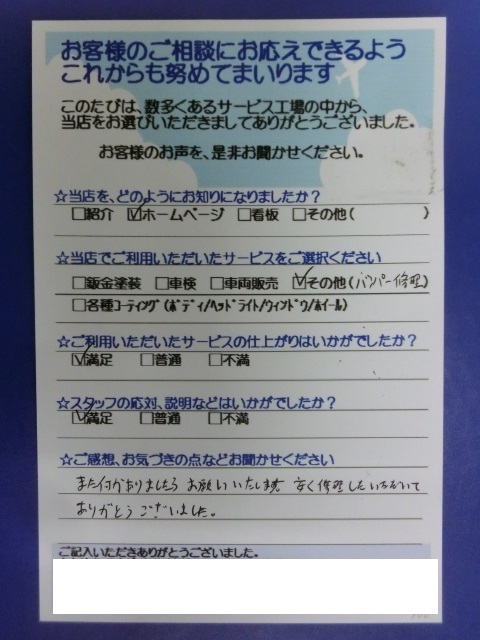 お客様のご相談にお応えできるよう
これからも努めてまいります
このたびは、数多くあるサービス工場の中から、
当店をお選びいただきましてありがとうございました。
お客様のお声を、是非お聞かせください。
☆当店を、どのようにお知りになりましたか？
□紹介 ☑ホームページ □看板 □その他( )
☆当店でご利用いただいたサービスをご選択ください
□鈑金塗装 □車検 □車両販売 ☑その他(バンパー修理)
□各種コーティング(ボディ/ヘッドライト/ウィンドウ/ホイール)
☆ご利用いただいたサービスの仕上がりはいかがでしたか？
☑満足 □普通 □不満
☆スタッフの応対、説明などはいかがでしたか？
☑満足 □普通 □不満
☆ご感想、お気づきの点などお聞かせください
また何かありましたら お願いいたします 安く修理していただいて
ありがとうございました。
ご記入いただきありがとうございました。